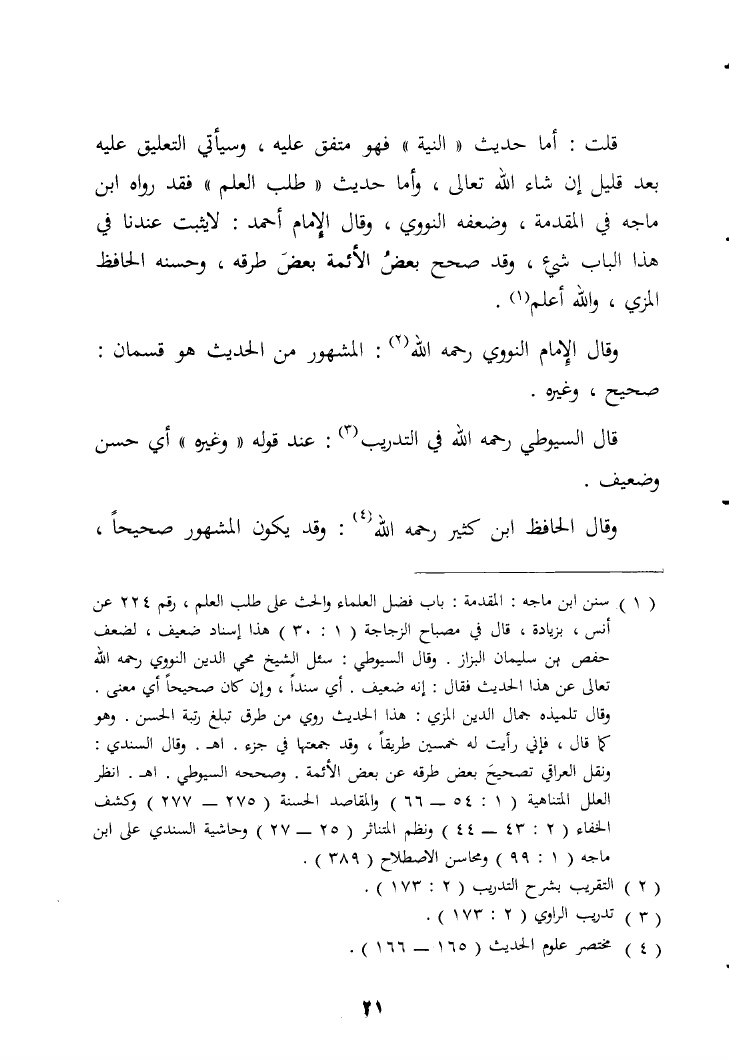 قلت : أما حديث « النية » فهو متفق عليه ، وسيأتي التعليق عليه
بعد قليل إن شاء الله تعالى ، وأما حديث « طلب العلم » فقد رواه ابن
ماجه في المقدمة ، وضعفه النووي ، وقال الإمام أحمد : لايثبت عندنا في
هذا الباب شيء ، وقد صحح بعضُ الأئمة بعضَ طرقه ، وحسنه الحافظ
المزي ، والله أعلم(١) .
وقال الإمام النووي رحمه الله(٢) : المشهور من الحديث هو قسمان :
صحيح ، وغيره .
قال السيوطي رحمه الله في التدريب(٣) : عند قوله « وغيره » أي حسن
وضعيف .
وقال الحافظ ابن كثير رحمه الله(٤) : وقد يكون المشهور صحيحاً ،
( ١ ) سنن ابن ماجه : المقدمة : باب فضل العلماء والحث على طلب العلم ، رقم ٢٢٤ عن
أنس ، بزيادة ، قال في مصباح الزجاجة ( ١ : ٣٠ ) هذا إسناد ضعيف ، لضعف
حفص بن سليمان البزاز . وقال السيوطي : سئل الشيخ محي الدين النووي رحمه الله
تعالى عن هذا الحديث فقال : إنه ضعيف . أي سنداً ، وإن كان صحيحاً أي معنى .
وقال تلميذه جمال الدين المزي : هذا الحديث روي من طرق تبلغ رتبة الحسن . وهو
كما قال ، فإني رأيت له خمسين طريقاً ، وقد جمعتها في جزء . اهـ . وقال السندي :
ونقل العراقي تصحيحَ بعض طرقه عن بعض الأئمة . وصححه السيوطي . اهـ . انظر
العلل المتناهية ( ١ : ٥٤ – ٦٦ ) والمقاصد الحسنة ( ٢٧٥ – ٢٧٧ ) وكشف
الخفاء ( ٢ : ٤٣ – ٤٤ ) ونظم المتناثر ( ٢٥ – ٢٧ ) وحاشية السندي على ابن
ماجه ( ١ : ٩٩ ) ومحاسن الاصطلاح ( ٣٨٩ ) .
( ٢ ) التقريب بشرح التدريب ( ٢ : ١٧٣ ) .
( ٣ ) تدريب الراوي ( ٢ : ١٧٣ ) .
( ٤ ) مختصر علوم الحديث ( ١٦٥ – ١٦٦ ) .
٢١